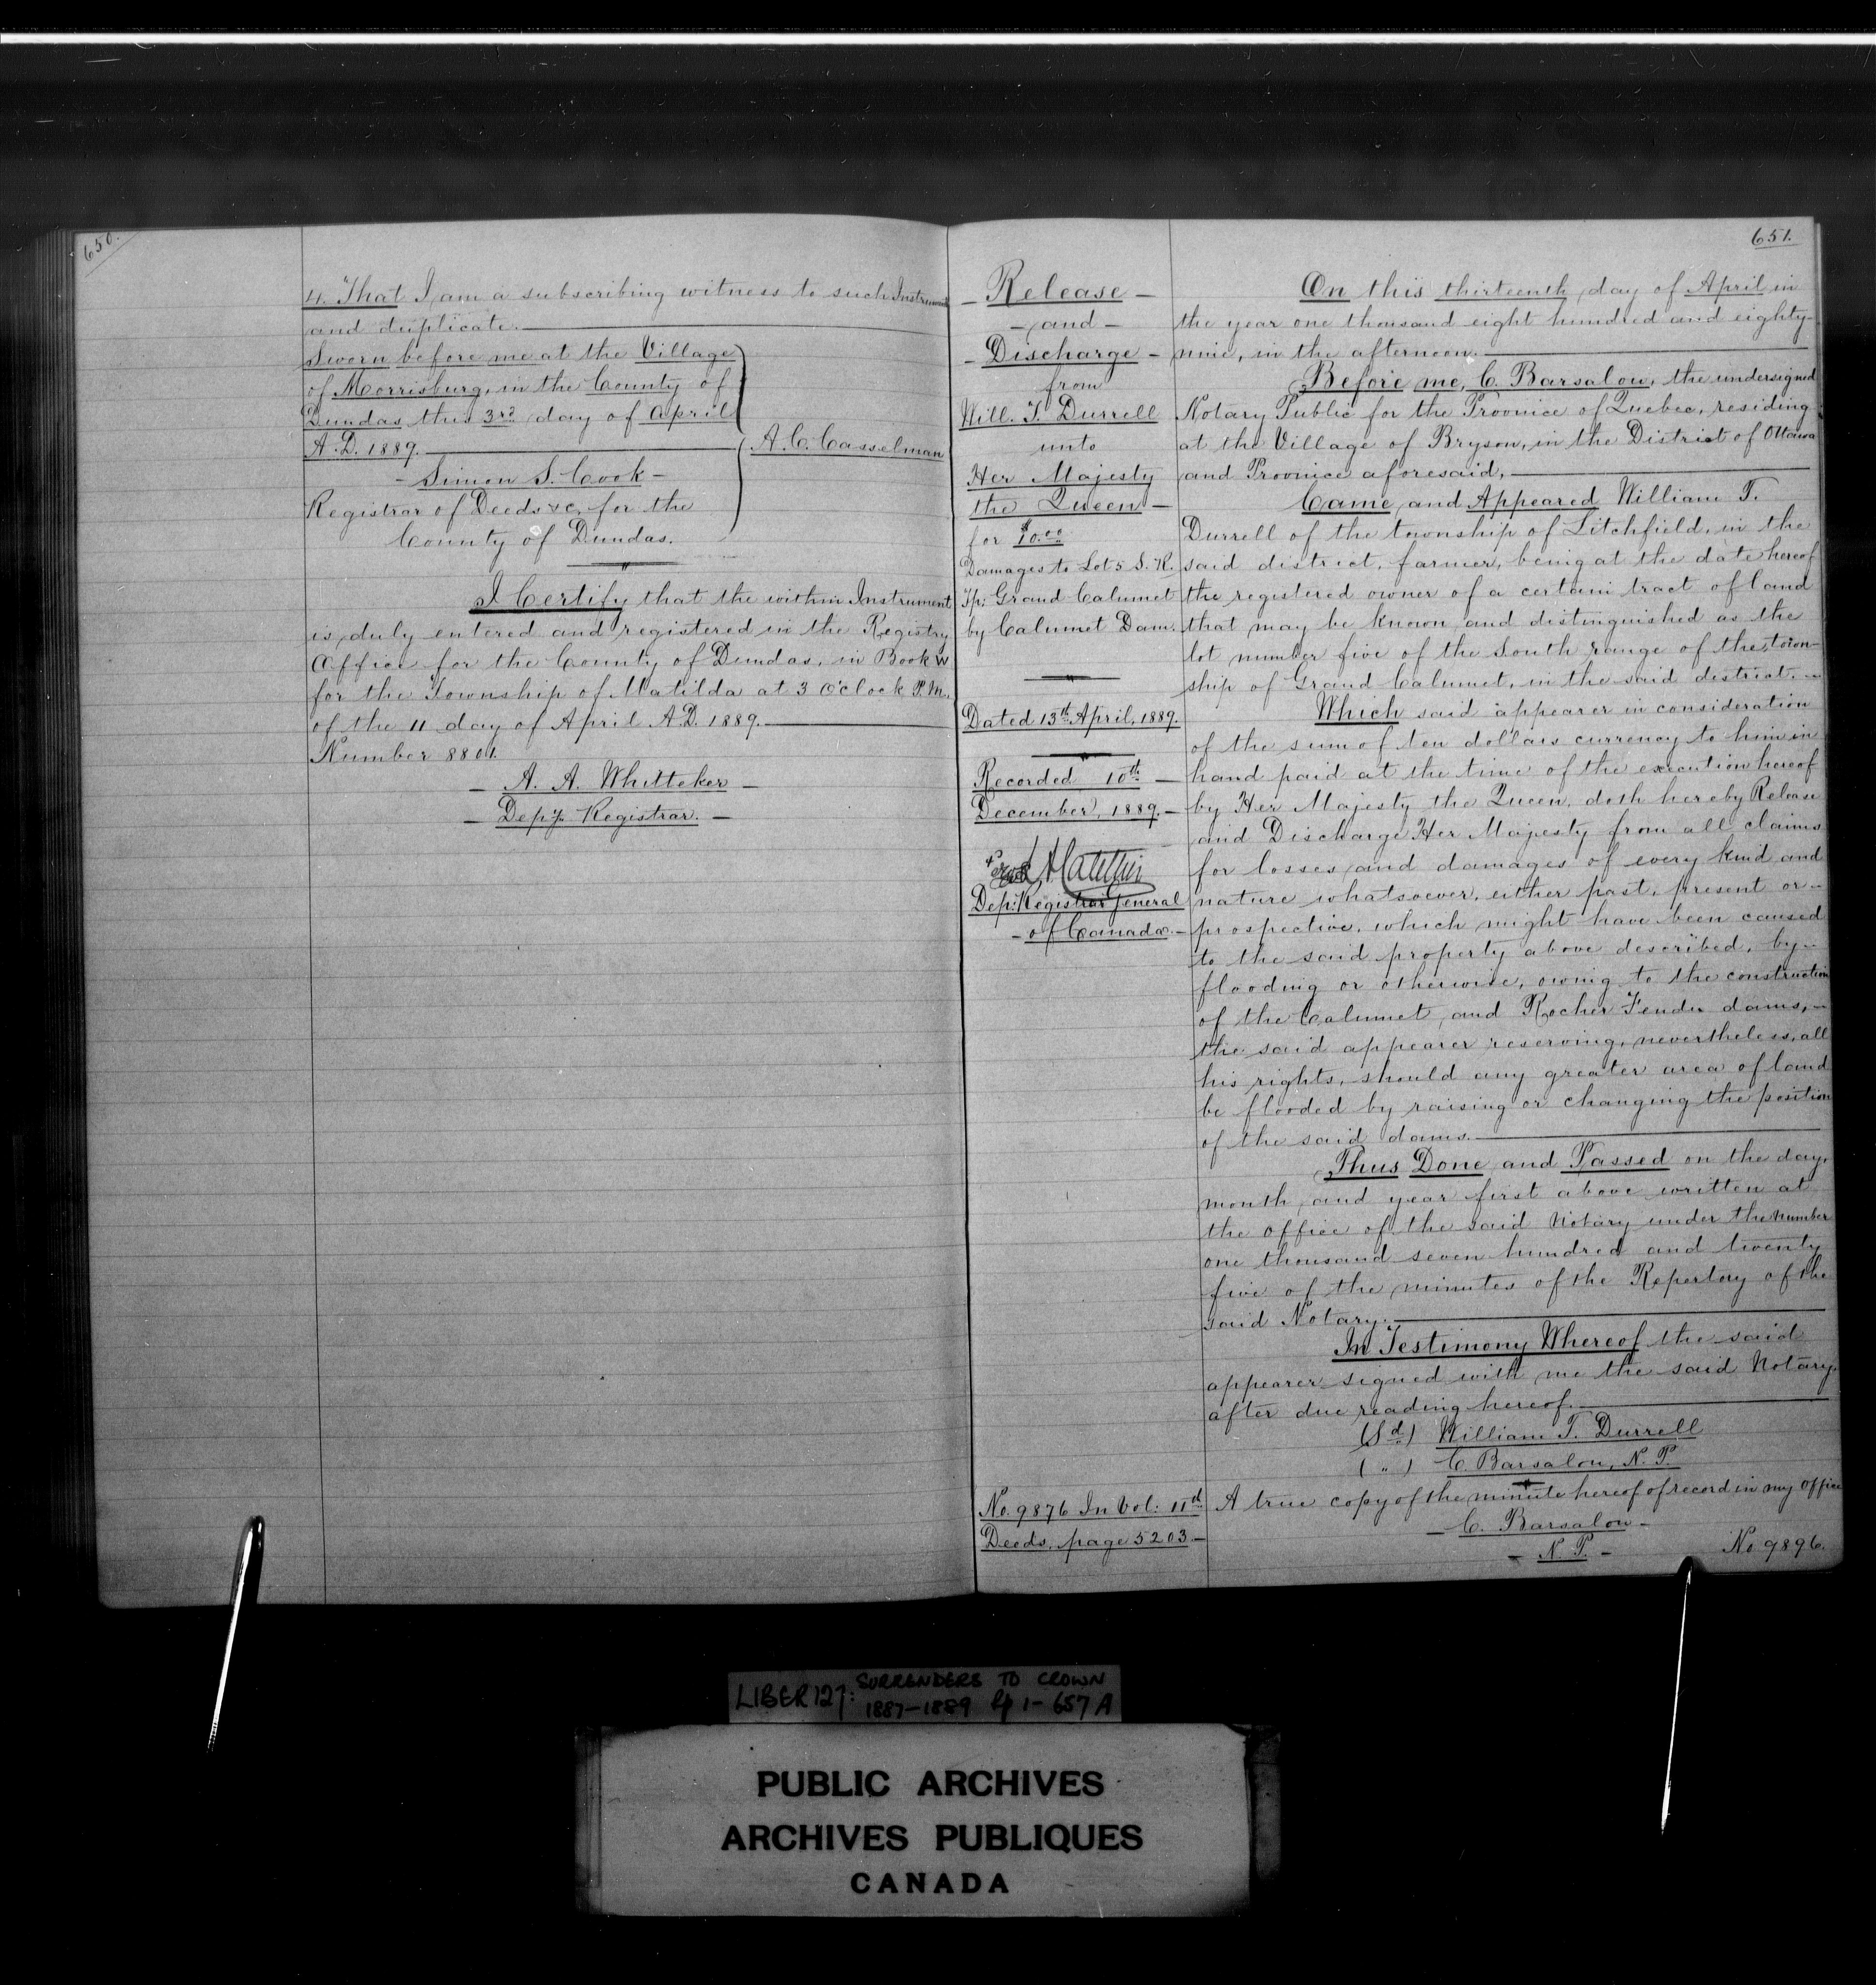 650.
4. That I am a subscribing witness to such Instrument
and duplicate.
Sworn before me at the Village
of Morrisburg, in the County of
Dundas this 3rd day of April
A.D. 1889.
A. C. Casselman
- Simon S. Cook -
Registrar of Deeds &c, for the
County of Dundas.
I Certify that the within Instrument
is duly entered and registered in the Registry
Office for the County of Dundas, in Book W
for the Township of Matilda at 3 O'clock P.M.
of the 11 day of April A.D. 1889.
Number 8801.
- A. A. Whitteker -
- Depy. Registrar. -
651.
- Release -
- and -
- Discharge -
from
Will. T. Durrell
unto
Her Majesty
the Queen -
for $10.00
Damages to Lot 5 S. R.
Tp: Grand Calumet
by Calumet Dam.
Dated 13th April, 1889.
Recorded 10th -
December, 1889. -
Dep: Registrar General
- of Canada. -
No. 9876 In Vol: 11th
Deeds, page 5203 -
On this thirteenth day of April in
the year one thousand eight hundred and eighty-
nine, in the afternoon.
Before me, C. Barsalou, the undersigned
Notary Public for the Province of Quebec, residing
at the Village of Bryson, in the District of Ottawa
and Province aforesaid,
Came and Appeared William T.
Durrell of the township of Litchfield, in the
said district, farmer, being at the date hereof
the registered owner of a certain tract of land
that may be known and distinguished as the
lot number five of the South range of the town-
ship of Grand Calumet, in the said district. -
Which said appearer in consideration
of the sum of ten dollars currency to him in
hand paid at the time of the execution hereof
by Her Majesty the Queen, doth hereby Release
and Discharge Her Majesty from all claims
for losses and damages of every kind and
nature whatsoever, either past, present or -
prospective, which might have been caused
to the said property above described, by -
flooding or otherwise, owing to the construction
of the Calumet and Rocher Fendu dams, -
the said appearer reserving, nevertheless, all
his rights, should any greater area of land
be flooded by raising or changing the position
of the said dams.
Thus Done and Passed on the day,
month and year first above written at
the office of the said Notary under the number
one thousand seven hundred and twenty
five of the minutes of the Repertory of the
said Notary.
In Testimony Whereof the said
appearer signed with me the said Notary,
after due reading hereof.
(Sd) William T. Durrell
( " ) C. Barsalou, N. P.
A true copy of the minute hereof of record in my office
- C. Barsalou -
- N. P. -
No. 9896.
LIBER 127: SURRENDERS TO CROWN
1887-1889 pp 1-657A
PUBLIC ARCHIVES
ARCHIVES PUBLIQUES
CANADA